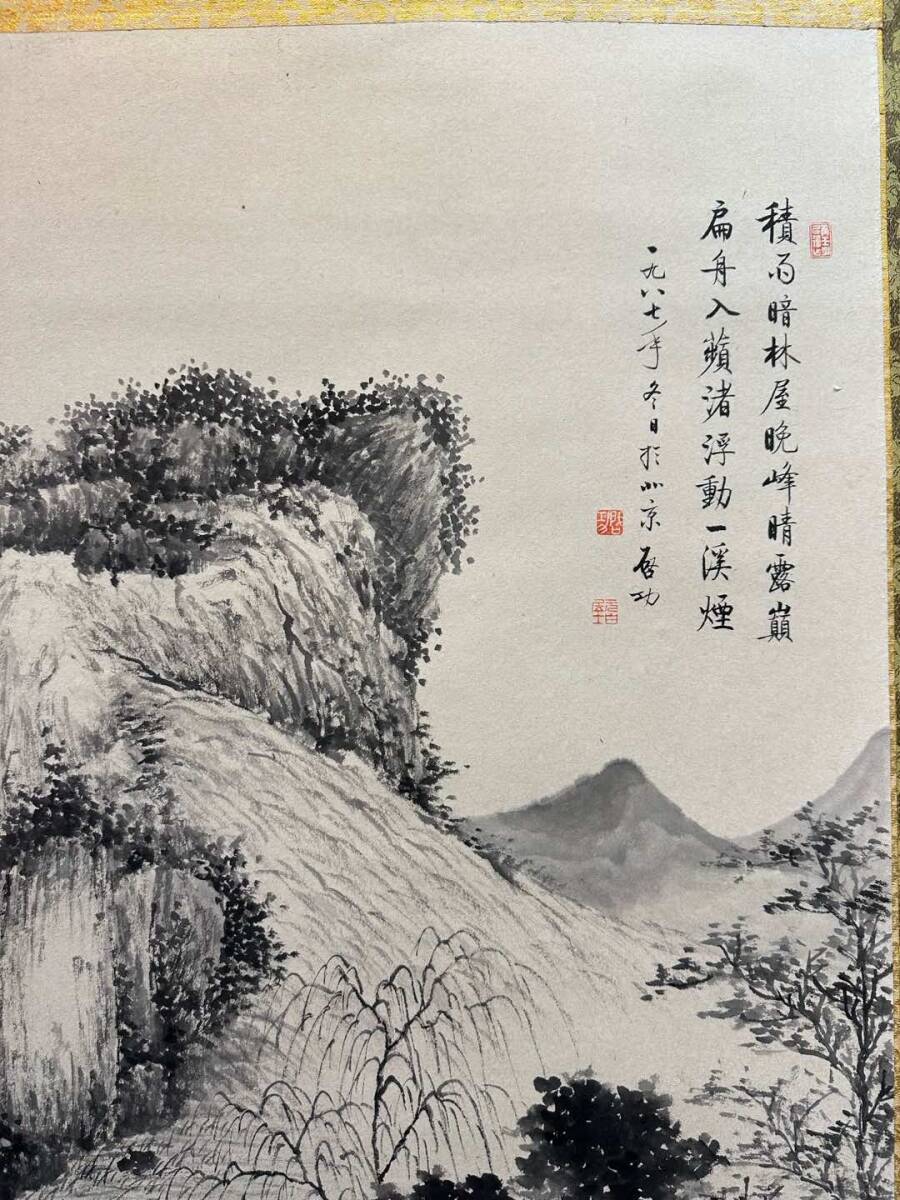 積雨暗林屋晚峰晴露巔
扁舟入蘋渚浮動一溪煙
一九八七年冬日於北京啓功
啓功
元白